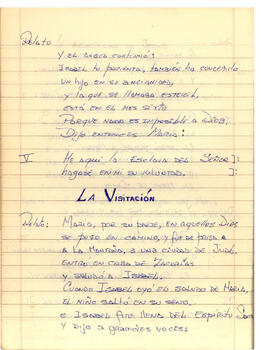 Relato
Y el angel continuó:
Isabel tu parienta, también ha concebido
un hijo en su ancianidad,
y la que se llamaba esteril,
está en el mes sexto
Porque nada es imposible a Dios.
Dijo entonces María:
V He aquí la Esclava del Señor):
hagase en mi su voluntad. ):
LA VISITACIÓN
Relato: María, por su parte, en aquellos Dias
se puso en camino, y fue de prisa
a la montaña, a una ciudad de Judá.
Entró en casa de Zacarías
y saludó a Isabel.
Cuando Isabel oyó el saludo de María,
el niño saltó en su seno,
e Isabel fue llena del Espíritu San
y dijo a grandes voces: